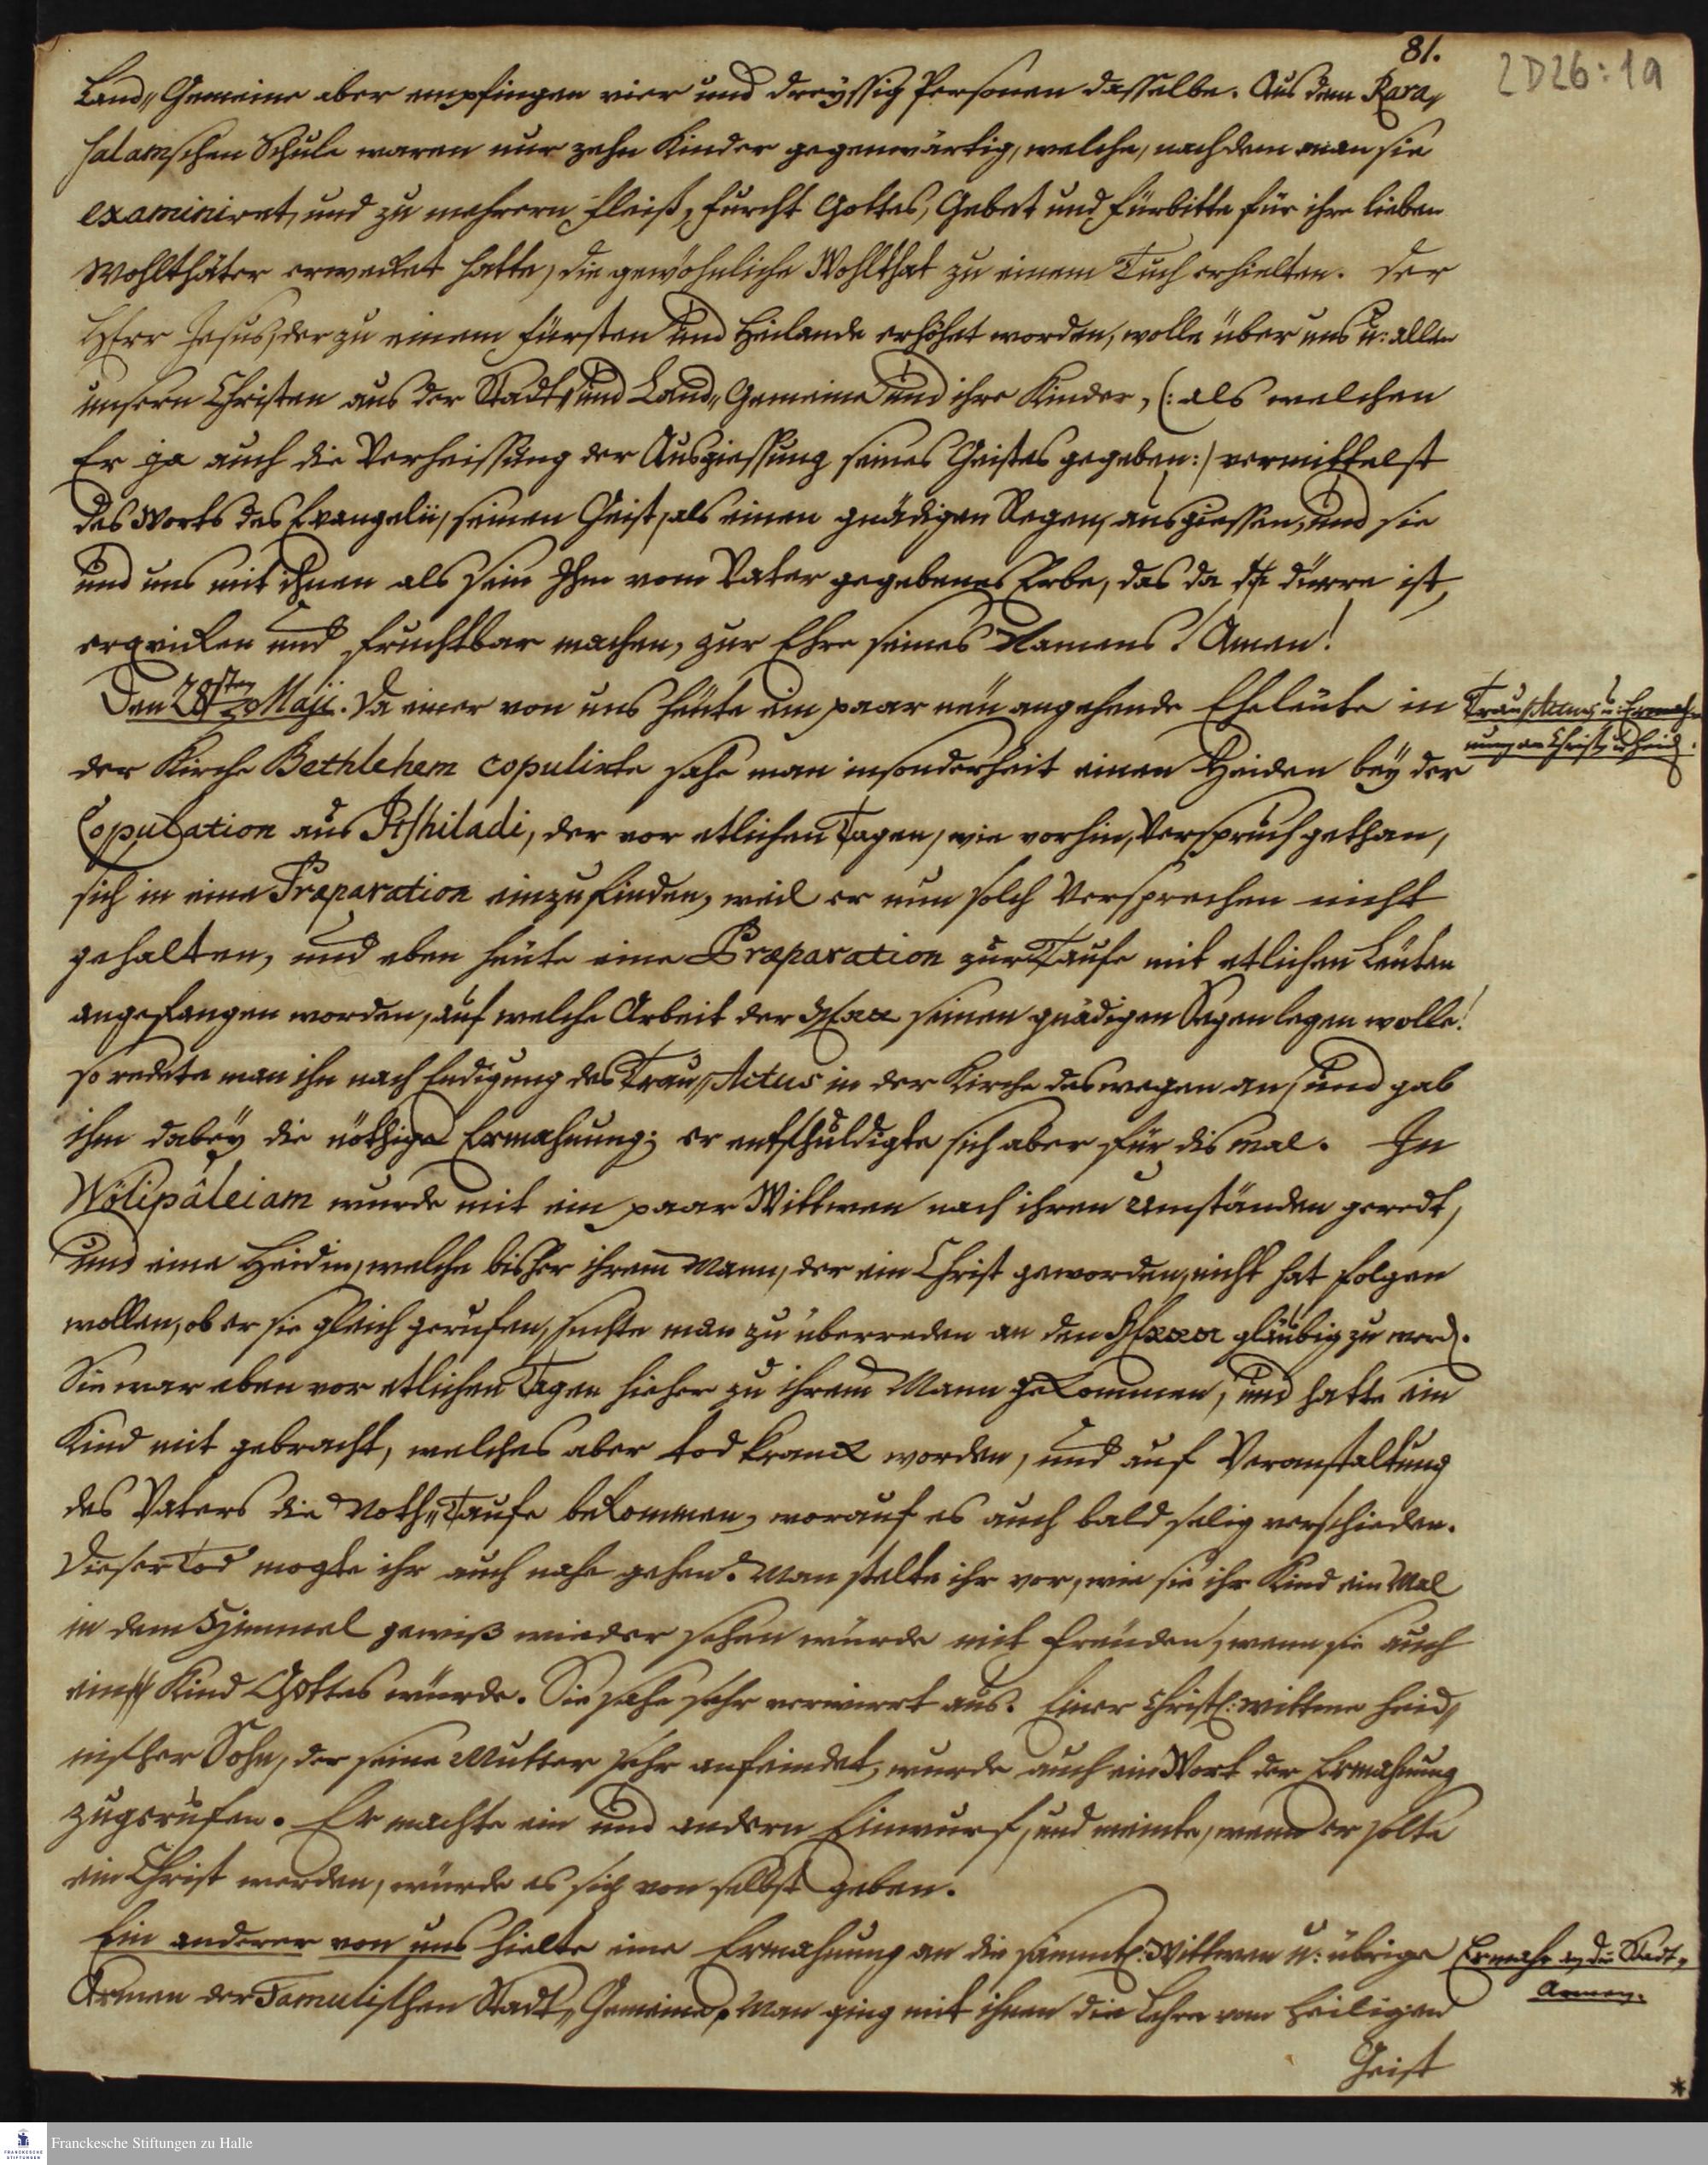 81.
2D26:19
Land„Gemeine aber empfingen vier und dreyssig Personen dasselbe. Aus dem Kara„
salamschen Schule waren nur zehn Kinder gegenwärtig, welche, nachdem man sie
examiniret, und zu mehrern Fleiß, Furcht Gottes, Gebet und Fürbitte für ihre lieben
Wohlthäter erwecket hatte, die gewöhnliche Wohlthat zu einem Tuch erhielten. Der
HErr Jesus, der zu einem Fürsten und Heilande erhöhet worden, wolle über uns u: allen
unsern Christen aus der Stadt„ und Land„Gemeine und ihre Kinder, (: als welchen
Er ja auch die Verheissung der Ausgiessung seines Geistes gegeben :) vermittelst
des Worts des Evangelii, seinen Geist, als einen gnädigen Regen, ausgiessen, und sie
und uns mit ihnen als sein Ihm vom Vater gegebenes Erbe, das da dürre ist,
erquicken und fruchtbar machen, zur Ehre seines Namens! Amen!
Den 28sten Maji. Da einer von uns heute ein paar neu angehende Eheleute in
der Kirche Bethlehem copulirte sahe man insonderheit einen Heiden bey der
Copulation aus Itshiladi, der vor etlichen Tagen, wie vorhin, Verspruch gethan,
sich in eine Præparation einzufinden, weil er nun solch Versprechen nicht
gehalten, und eben heute eine Præparation zur Taufe mit etlichen Leuten
angefangen worden, auf welche Arbeit der HErr seinen gnädigen Segen legen wolle!
so redete man ihn nach Endigung des Trau„Actus in der Kirche deswegen an, und gab
ihm dabey die nöthige Ermahnung; er entschuldigte sich aber für dis mal. In
Wölipâleiam wurde mit ein paar Wittwen nach ihren Umständen geredt,
und eine Heidin, welche bisher ihrem Mann, der ein Christ geworden, nicht hat folgen
wollen, ob er sie gleich gerufen, suchte man zu überreden an den HErrn gläubig zu werd.
Sie war eben vor etlichen Tagen hieher zu ihrem Mann gekommen, und hatte ein
Kind mit gebracht, welches aber tod kranck worden, und auf Veranstaltung
des Vaters die Noth„Taufe bekommen, worauf es auch bald selig verschieden.
Dieser Tod mogte ihr auch nahe gehen. Man stelte ihr vor, wie sie ihr Kind ein Mal
in dem Himmel gewiß wieder sehen würde mit Freuden, wenn sie auch
ein Kind Gottes würde. Sie sahe sehr verwirrt aus. Einer Christl: Wittwe heid„
nischer Sohn, der seine Mutter sehr anfeindet, wurde auch ein Wort der Ermahnung
zugerufen. Er machte ein und andern Einwurf, und meinte, wenn er solte
ein Christ werden, würde es sich von selbst geben.
Ein anderer von uns hielte eine Ermahnung an die sämmtl: Wittwen u: übrige
Armen der Tamulischen Stadt„Gemeine. Man ging mit ihnen die Lehre vom Heiligen
Geist
Trau„Actus, u: Ermah„
nung an Christ. u Heid.
Ermahn. an die Stadt„
Armen.
*
Franckesche Stiftungen zu Halle
FRANCKESCHE
STIFTUNGEN